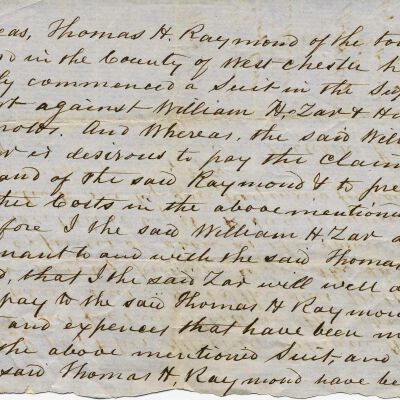 eas, Thomas H. Raymond of the tow
d in the County of West Chester h
ly commenced a Suit in the Su
rt against William H. Zar & Hi
nolds. And Whereas, the said Will
r is desirous to pay the claim
and of the said Raymond & to pre
ther Costs in the above mentioned
efore I the said William H. Zar a
nant to and with the said Thomas
d, that I the said Zar will well a
pay to the said Thomas H Raymo
t and expences that have been m
the above mentioned Suit, and
said Thomas H, Raymond have be